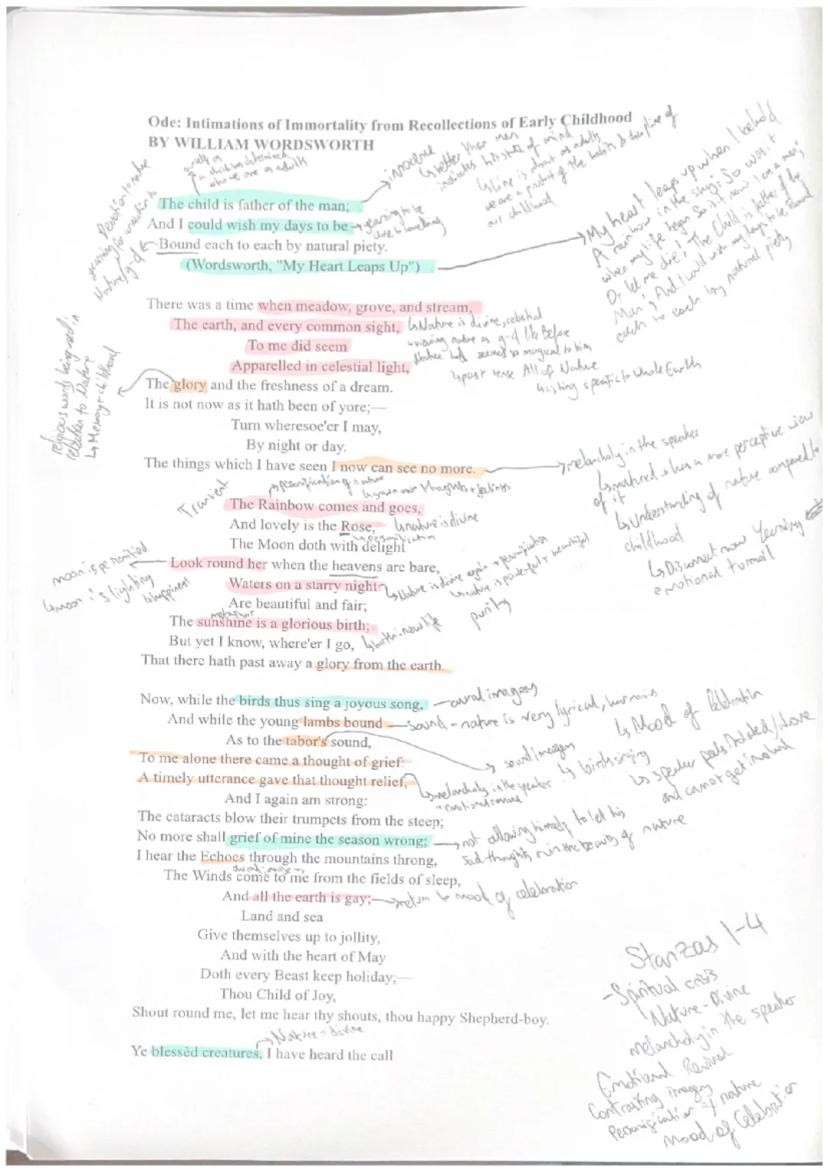 Ode: Intimations of Immortality from Recollections of Early Childhood
BY WILLIAM WORDSWORTH
innocence
better than man
indicates his state of mind
Line is about as adults
we are a product of the habits & discipline of
our childhood
who we are as adults
The child is father of the man;
And I could wish my days to be
yearning to be
Bound each to each by natural piety.
Nature/g-d
(Wordsworth, "My Heart Leaps Up")
My heart leaps up when I behold
A rainbow in the sky: So was it
when my life began So is it now I am a man;
Or let me die! The Child is father of the
Man; And I could wish my days to be Bound
each to each by natural piety
There was a time when meadow, grove, and stream,
The earth, and every common sight,
Nature is divine, celestial
To me did seem
Nature seemed so magical to him
Apparelled in celestial light,
past tense All of Nature
The glory and the freshness of a dream.
Listing specific to whole Earth
religious words being used in
relation to Nature
Memory + childhood
It is not now as it hath been of yore;—
Turn wheresoe'er I may,
By night or day.
The things which I have seen I now can see no more.
melancholy in the speaker
matured & has a more perceptive view
of it
Understanding of nature compared to
childhood
Disconnect now Yearning
emotional turmoil
Transient
personification of nature
thoughts + feelings
The Rainbow comes and goes,
And lovely is the Rose,
nature is divine
personification
The Moon doth with delight
moon is personified
Look round her when the heavens are bare,
moon is lighting
Waters on a starry night
Nature is divine again + personification
nature is powerful + beautiful
purity
Are beautiful and fair;
metaphor
The sunshine is a glorious birth;
But yet I know, where'er I go,
birth - new life
That there hath past away a glory from the earth.
Now, while the birds thus sing a joyous song,
aural imagery
And while the young lambs bound
sound - nature is very lyrical, humans
Mood of Celebration
As to the tabor's sound,
sound imagery
birds singing
speaker feels isolated/alone
and cannot get involved
To me alone there came a thought of grief:
A timely utterance gave that thought relief,
melancholy in the speaker
And I again am strong:
The cataracts blow their trumpets from the steep;
No more shall grief of mine the season wrong;
not allowing himself to let his
sad thoughts ruin the beauty of nature
I hear the Echoes through the mountains throng,
The Winds come to me from the fields of sleep,
And all the earth is gay;
return to mood of celebration
Land and sea
Give themselves up to jollity,
And with the heart of May
Doth every Beast keep holiday;—
Thou Child of Joy,
Shout round me, let me hear thy shouts, thou happy Shepherd-boy.
Nature = divine
Ye blessèd creatures, I have heard the call
Stanzas 1-4
-Spiritual crisis
Nature - Divine
melancholy in the speaker
Emotional Revival
Contrasting imagery
Personification of nature
Mood of Celebration